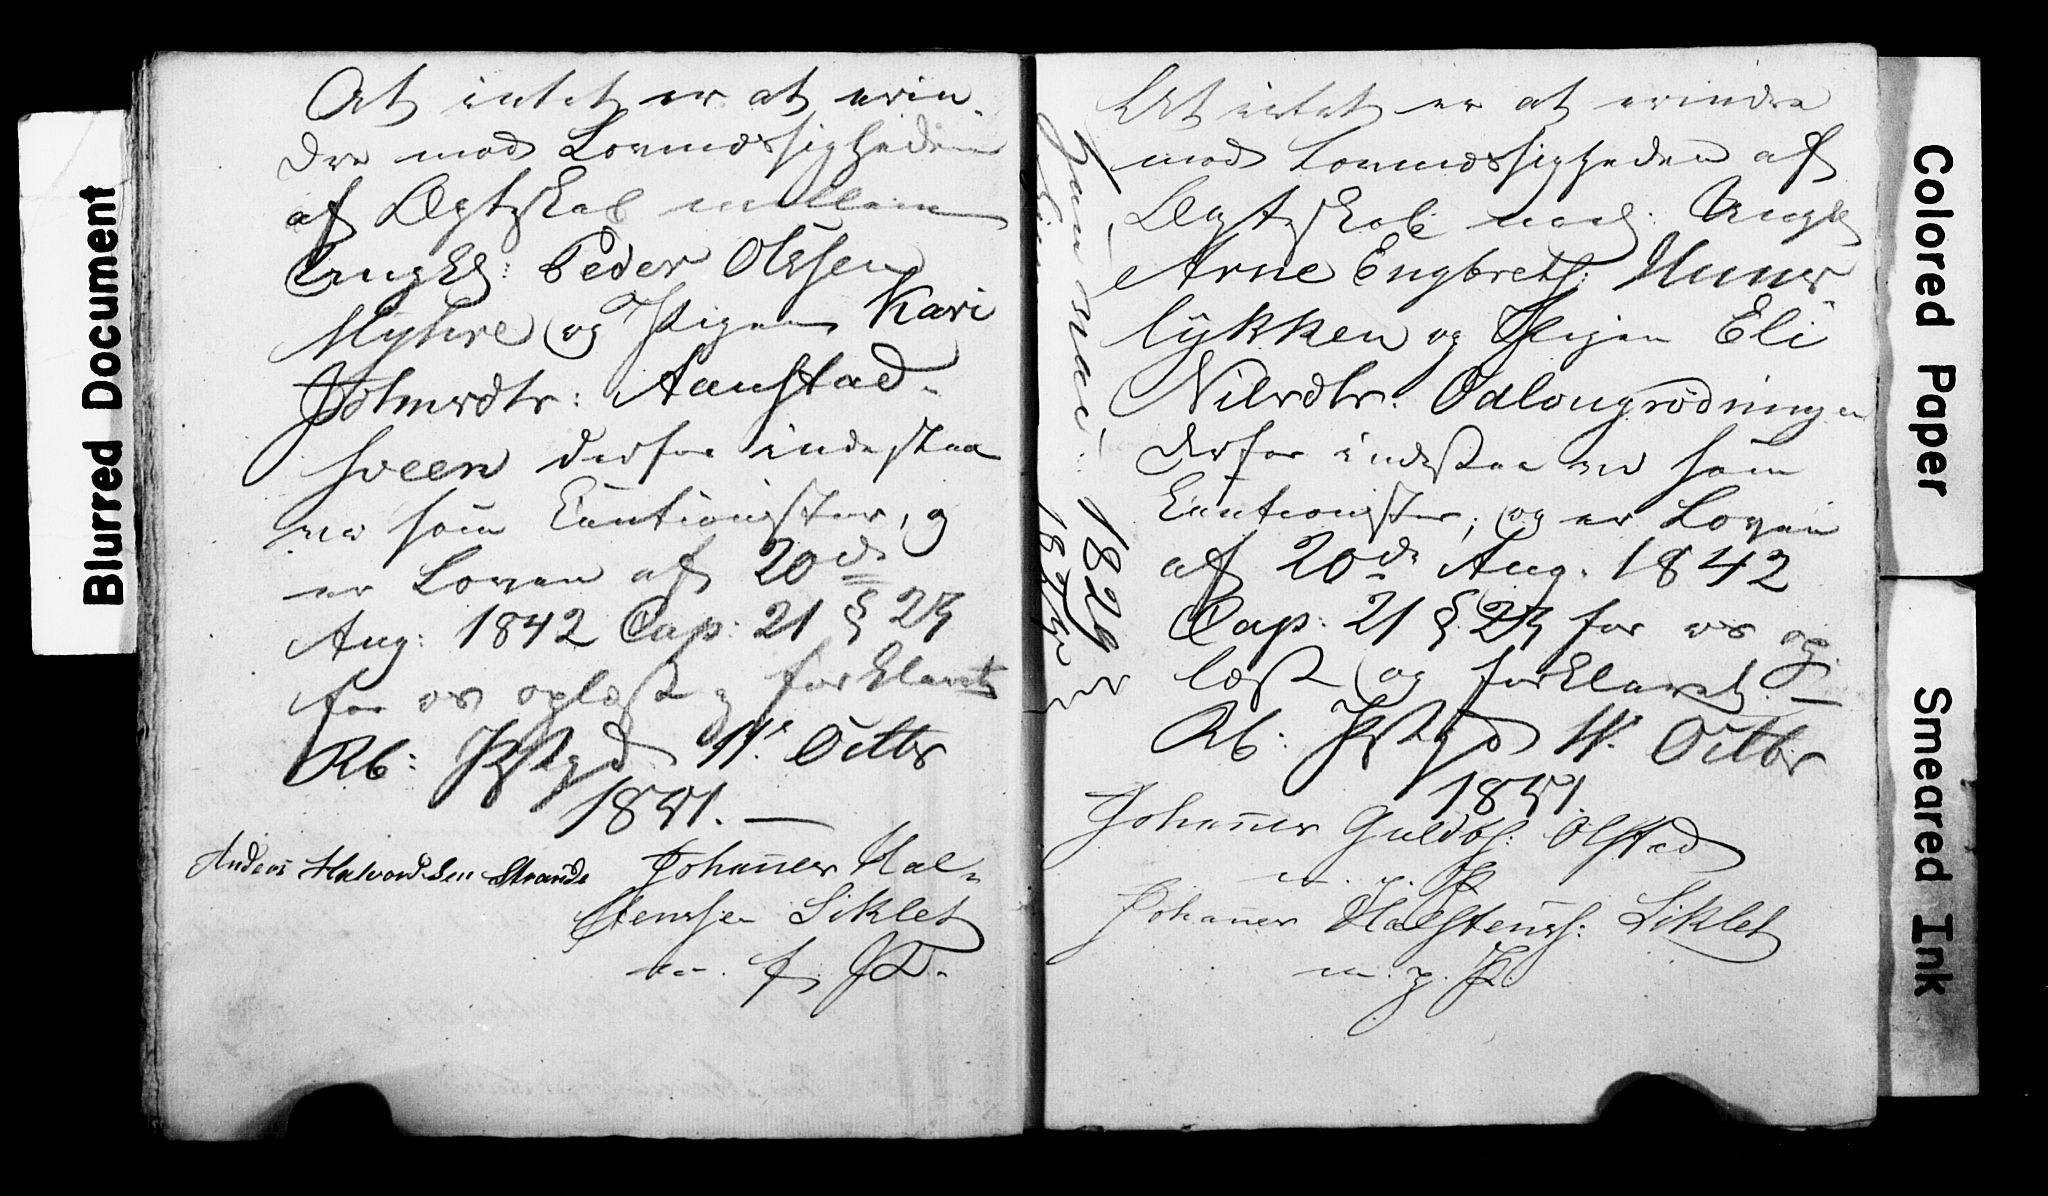 Blurred Document
At intet er at erin-
dre mod Lovmæssigheden
af Ægteskab mellem
Ungkl: Peder Olssen
Myhre og Pigen Kari
Johnsdtr: Aanstad-
sveen derfor indestaa
vi som Cautionister, og
er Loven af 20de
Aug: 1842 Cap: 21 § 25
for os oplæst og forklaret
Rb: Pstgd 11te Octbr
1851. —
Anders Halvordsen Strande
Johannes Hal-
stensen Siklet
m. f. P.
Junonai: 1829
At intet er at erindre
mod Lovmæssigheden af
Ægteskab mel: Ungk
Arne Engbrets: Huus
lykken og Pigen Eli
Nilsdtr: Odlongrødningen
derfor indestaa vi som
Cautionister, og er Loven
af 20de Aug. 1842
Cap: 21 § 25 for os op
læst og forklaret. —
Rb: Pstgd 11. Octbr
1851.
Johannes Guldbs: Olstad
m. p. P.
Johannes Halstenss: Siklet
m. p. P.
Colored Paper
Smeared Ink